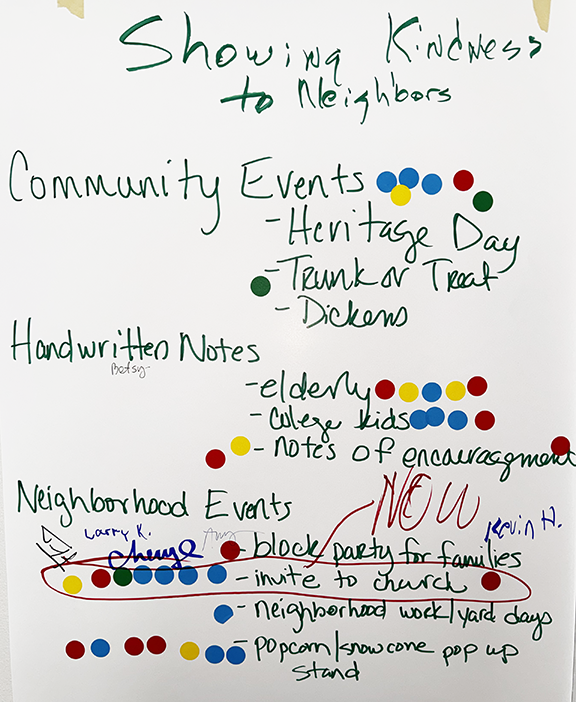 Showing Kindness
to Neighbors
Community Events
- Heritage Day
- Trunk or Treat
- Dickens
Handwritten Notes
Betsy
- elderly
- College kids
- notes of encouragement
Neighborhood Events
NOW
Larry K.
Cheryl
Amy
Kevin H.
- block party for families
- invite to church
- neighborhood work/yard days
- popcorn/snowcone pop up
stand